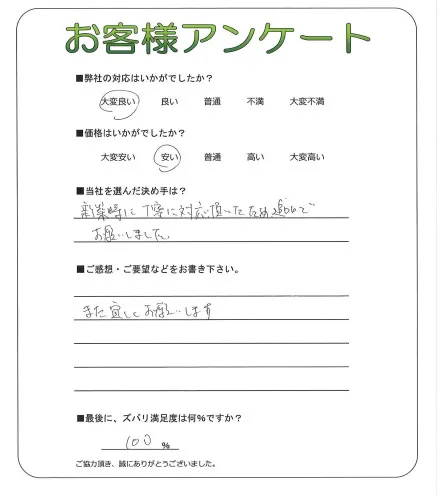 お客様アンケート
■弊社の対応はいかがでしたか？
大変良い 良い 普通 不満 大変不満
■価格はいかがでしたか？
大変安い 安い 普通 高い 大変高い
■当社を選んだ決め手は？
丁寧に対応頂いたため
お願いしました
■ご感想・ご要望などをお書き下さい。
また宜しくお願いします
■最後に、ズバリ満足度は何%ですか？
100 %
ご協力頂き、誠にありがとうございました。